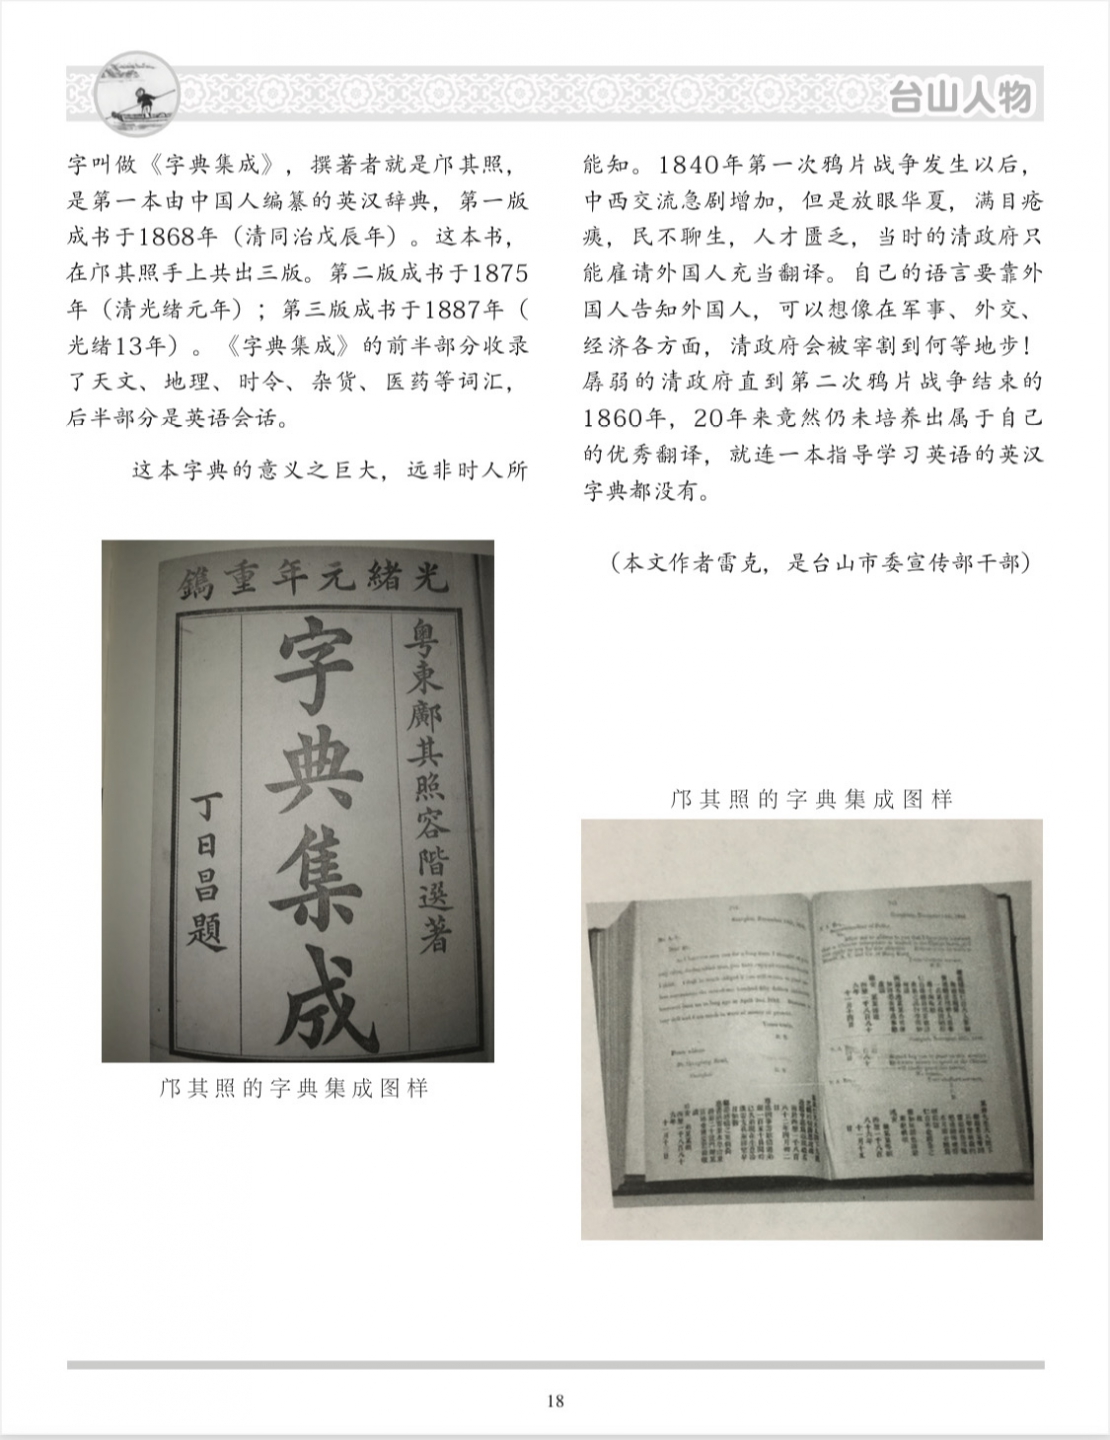 台山人物
字叫做《字典集成》，撰著者就是邝其照，
是第一本由中国人编纂的英汉辞典，第一版
成书于1868年（清同治戊辰年）。这本书，
在邝其照手上共出三版。第二版成书于1875
年（清光绪元年）；第三版成书于1887年（
光绪13年）。《字典集成》的前半部分收录
了天文、地理、时令、杂货、医药等词汇，
后半部分是英语会话。
这本字典的意义之巨大，远非时人所
光緒元年重鐫
粤東鄺其照容階選著
字典集成
丁日昌題
邝其照的字典集成图样
能知。1840年第一次鸦片战争发生以后，
中西交流急剧增加，但是放眼华夏，满目疮
痍，民不聊生，人才匮乏，当时的清政府只
能雇请外国人充当翻译。自己的语言要靠外
国人告知外国人，可以想像在军事、外交、
经济各方面，清政府会被宰割到何等地步！
孱弱的清政府直到第二次鸦片战争结束的
1860年，20年来竟然仍未培养出属于自己
的优秀翻译，就连一本指导学习英语的英汉
字典都没有。
（本文作者雷克，是台山市委宣传部干部）
邝其照的字典集成图样
18